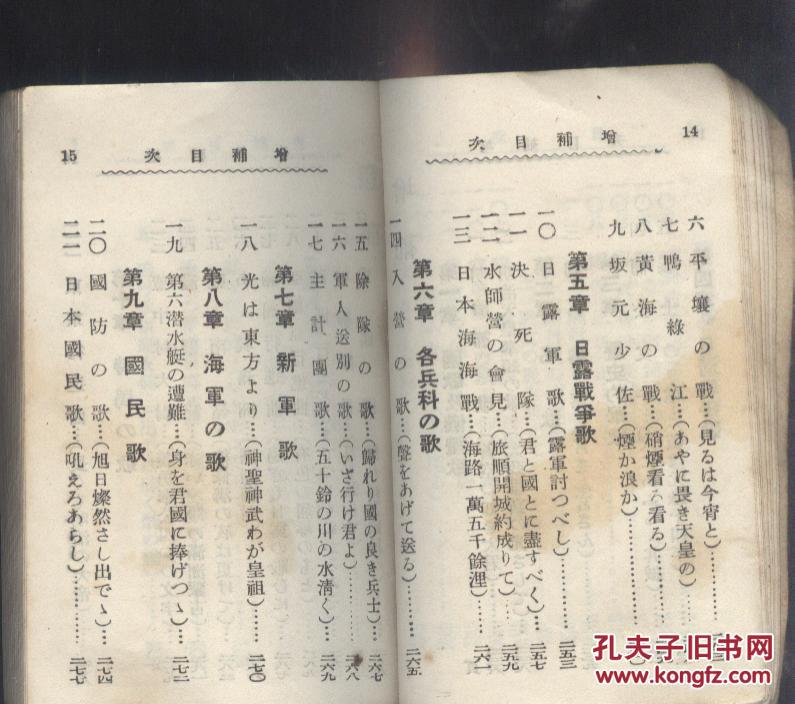 14
增補目次
六 平壤の戰…(見るは今宵と)……
七 鴨綠江…(あやに畏き天皇の)……
八 黃海の戰…(硝煙看る看る)……
九 坂元少佐…(煙か浪か)……
第五章 日露戰爭歌
一〇 日露軍歌…(露軍討つべし)……二五三
一一 決死隊…(君と國とに盡すべく)…二五七
一二 水師營の會見…(旅順開城約成りて)…二五九
一三 日本海海戰…(海路一萬五千餘浬)…二六一
第六章 各兵科の歌
一四 入營の歌…(聲をあげて送る)……二六五
15
增補目次
一五 除隊の歌…(歸れり國の良き兵士)…二六七
一六 軍人送別の歌…(いざ行け君よ)……二六八
一七 主計團歌…(五十鈴の川の水淸く)…二六九
第七章 新軍歌
一八 光は東方より…(神聖神武わが皇祖)……二七〇
第八章 海軍の歌
一九 第六潜水艇の遭難…(身を君國に捧げつゝ)…二七二
第九章 國民歌
二〇 國防の歌…(旭日燦然さし出でゝ)…二七四
二一 日本國民歌…(吼えろあらし)……二七七
孔夫子旧书网
www.kongfz.com